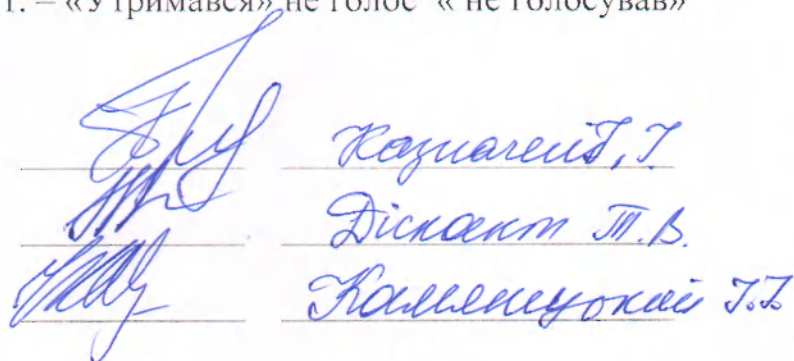 – «Утримався» не голос « не голосував»
Казначей Г, Г
Діскант Т.В.
Камянецький Г.Г.